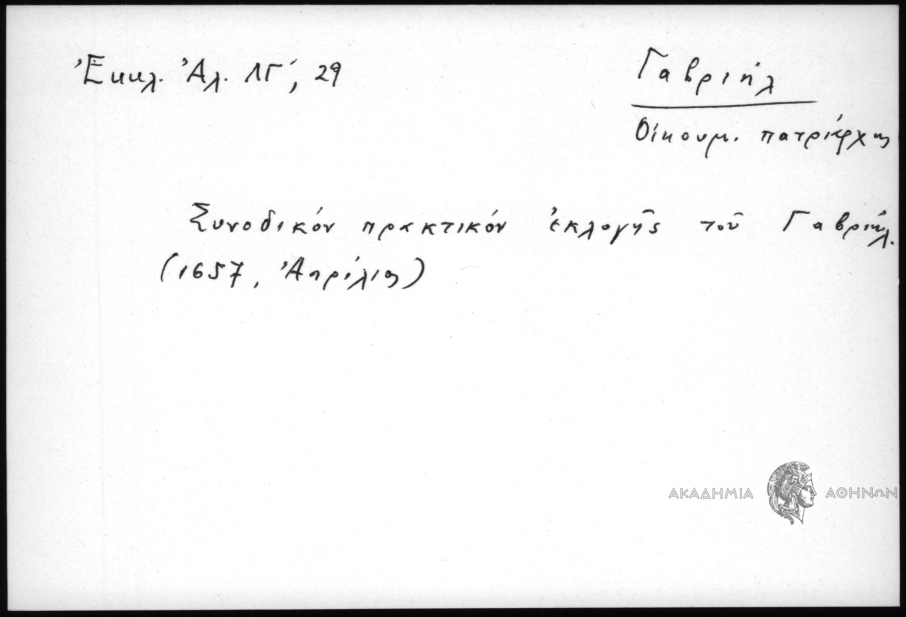 Ἐκκλ. Ἀλ. ΛΓ΄, 29
Γαβριήλ
Οἰκουμ. πατριάρχης
Συνοδικόν πρακτικόν ἐκλογῆς τοῦ Γαβριήλ.
(1657, Ἀπρίλιος)
ΑΚΑΔΗΜΙΑ ΑΘΗΝΩΝ